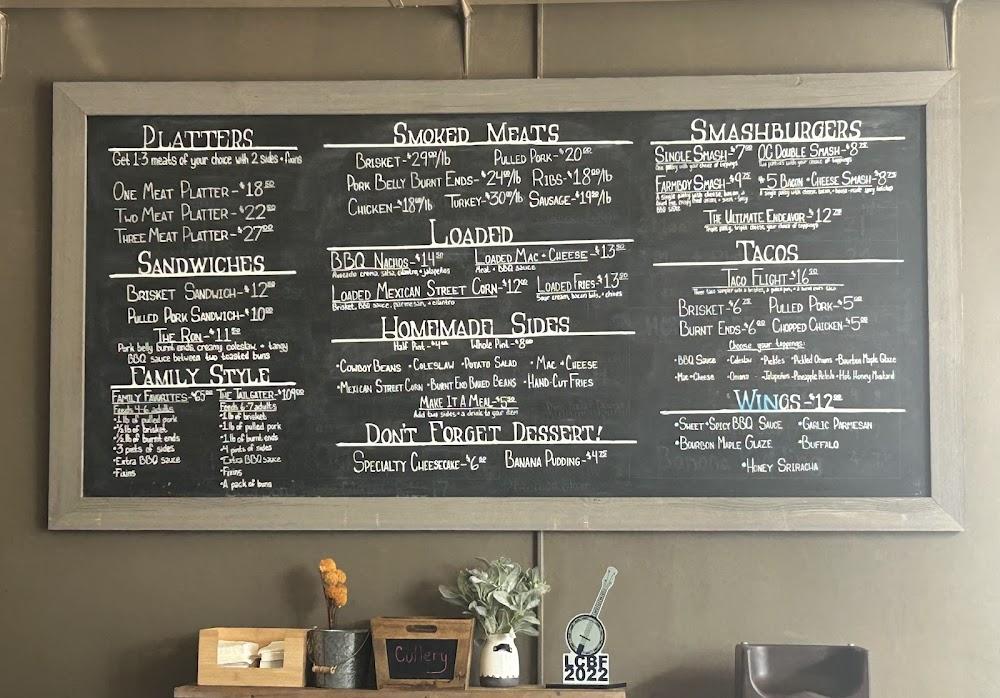 PLATTERS
Get 1-3 meats of your choice with 2 sides + fixins
ONE MEAT PLATTER-$18.50
TWO MEAT PLATTER-$22.50
THREE MEAT PLATTER-$27.00
SANDWICHES
BRISKET SANDWICH-$12.00
PULLED PORK SANDWICH-$10.00
THE RON-$11.50
Pork belly burnt ends, creamy coleslaw + tangy
BBQ sauce between two toasted buns
FAMILY STYLE
FAMILY FAVORITES-$65.00
Feeds 4-6 adults
•1 lb of pulled pork
•½ lb of brisket
•½ lb of burnt ends
•3 pints of sides
•Extra BBQ sauce
•Fixins
THE TAILGATER-$109.00
Feeds 6-7 adults
•1 lb of brisket
•1 lb of pulled pork
•1 lb of burnt ends
•4 pints of sides
•Extra BBQ sauce
•Fixins
•A pack of buns
SMOKED MEATS
BRISKET-$29.00/lb PULLED PORK-$20.00
PORK BELLY BURNT ENDS-$24.00/lb RIBS-$18.00/lb
CHICKEN-$18.00/lb TURKEY-$30.00/lb SAUSAGE-$19.00/lb
LOADED
BBQ NACHOS-$14.50 LOADED MAC + CHEESE-$13.50
Avocado crema, salsa, cilantro, + jalapeños Meat + BBQ sauce
LOADED MEXICAN STREET CORN-$12.00 LOADED FRIES-$13.00
Brisket, BBQ sauce, parmesan, + cilantro Sour cream, bacon bits, + chives
HOMEMADE SIDES
Half Pint-$4.00 Whole Pint-$8.00
•COWBOY BEANS •COLESLAW •POTATO SALAD •MAC + CHEESE
•MEXICAN STREET CORN •BURNT END BAKED BEANS •HAND-CUT FRIES
MAKE IT A MEAL-$5.50
Add two sides + a drink to your item
DON'T FORGET DESSERT!
SPECIALTY CHEESECAKE-$6.00 BANANA PUDDING-$4.25
SMASHBURGERS
SINGLE SMASH-$7.00 OG DOUBLE SMASH-$8.25
One patty with your choice of toppings Two patties with your choice of toppings
FARMBOY SMASH-$9.25 #5 BACON + CHEESE SMASH-$8.75
A single patty with cheese, bacon, a
BBQ sauce
THE ULTIMATE ENDEAVOR-$12.25
Triple patty, triple cheese, your choice of toppings
TACOS
TACO FLIGHT-$16.50
BRISKET-$6.25 PULLED PORK-$5.00
BURNT ENDS-$6.00 CHOPPED CHICKEN-$5.00
Choose your toppings:
•BBQ Sauce •Coleslaw •Pickles •Pickled Onions •Bourbon Maple Glaze
•Mac + Cheese •Onions •Jalapeños •Pineapple Relish •Hot Honey Mustard
WINGS-$12.00
•SWEET + SPICY BBQ SAUCE •GARLIC PARMESAN
•BOURBON MAPLE GLAZE •BUFFALO
•HONEY SRIRACHA
Cutlery
LCBF
2022